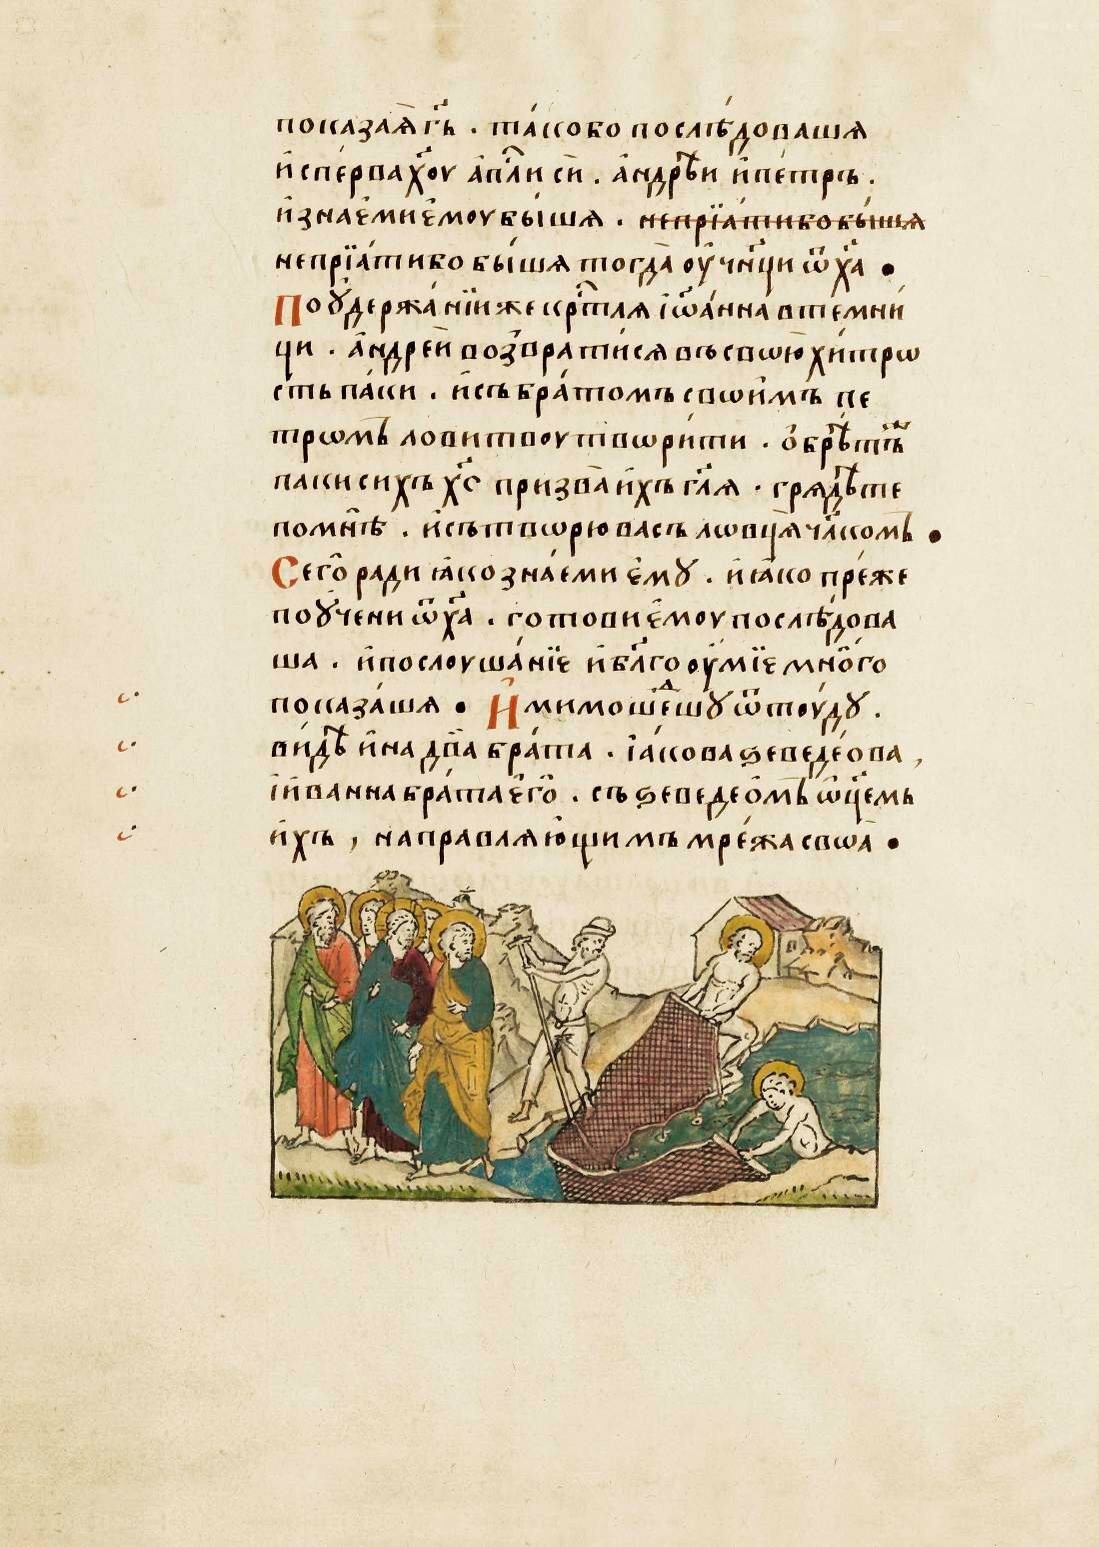 показаѧ̀ гⷭ҇ь . та́ково послѣ́доваша
и҆ спе́рва хⷭ҇оу а҆пⷭ҇ли сѝ . а҆ндрѣ́и и҆ пе́тръ .
и҆ зна́еми є҆моу бы́шѧ . непрїѧ́тиво бы́шѧ
непрїа́тиво бы́шѧ тогда̀ оу҆чн҃ци ѿ хⷭ҇а •
По ᲂу҆держа́нїи же крⷭ҇тлѧ і҆ѡа́нна в темни́
ци . а҆ндре́й возврати́сѧ въ свою̀ хи́трѡ
сть па́ки . и҆ съ бра́томъ свои́мъ пе
трѡ́мъ ловитвоу твѡри́ти . ѡ҆брѣ́тъ же
паки сихъ хⷭ҇с призва̀ и҆́хъ гл҃ѧ . грѧдѣ́те
по мнѣ̀ . и҆ сътвѡрю̀ васъ лѡвцѧ̀ чл҃комъ •
Сего̀ ра́ди ꙗ҆́ко зна́еми є҆мꙋ̀ . и҆ ꙗ҆́ко пре́же
поꙋче́ни ѿ хⷭ҇а . готови є҆моу послѣ́дова
ша . и҆ послоуша́нїе и҆ бл҃гооу҆мїе мно́го
показа́шѧ • И҆ мимоше́дшꙋ ѿтоу́дꙋ .
ви́дѣ и҆на два̀ бра́та . і҆а́кова ѕеведе́ова ,
і҆ и҆ванна бра́та є҆го̀ . съ ѕеведео́мъ ѻ҆ц҃емь
и҆́хъ , направлѧ́ющимъ мре́жа своѧ̀ •